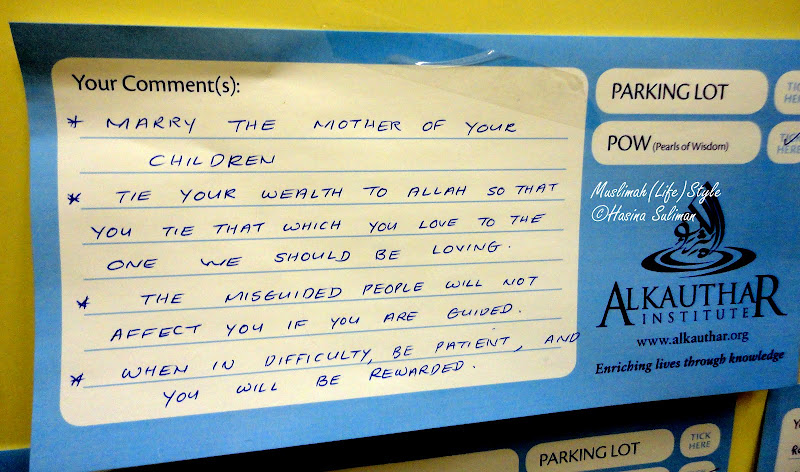 Your Comment(s):
* MARRY THE MOTHER OF YOUR
CHILDREN
* TIE YOUR WEALTH TO ALLAH SO THAT
YOU TIE THAT WHICH YOU LOVE TO THE
ONE WE SHOULD BE LOVING.
* THE MISGUIDED PEOPLE WILL NOT
AFFECT YOU IF YOU ARE GUIDED.
* WHEN IN DIFFICULTY, BE PATIENT, AND
YOU WILL BE REWARDED.
PARKING LOT
TICK
HERE
POW (Pearls of Wisdom)
TICK
HERE
Muslimah (Life) Style
©Hasina Suliman
ALKAUTHAR
INSTITUTE
www.alkauthar.org
Enriching lives through knowledge
PARKING LOT
TICK
HERE
POW (Pearls of Wisdom)